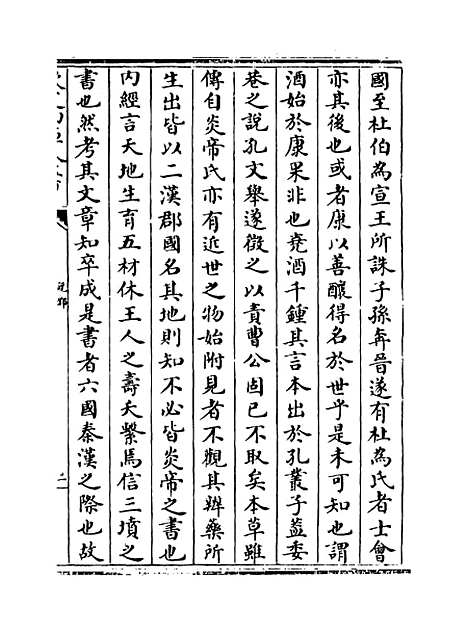 國至杜伯為宣王所誅子孫奔晉遂有杜為氏者士會
亦其後也或者康以善釀得名於世乎是未可知也謂
酒始於康果非也堯酒千鍾其言本出於孔叢子葢委
巷之說孔文舉遂徵之以責曹公固已不取矣本草雖
傳自炎帝氏亦有近世之物始附見者不觀其辨藥所
生出皆以二漢郡國名其地則知不必皆炎帝之書也
內經言天地生育五材休王人之壽夭繫焉信三墳之
書也然考其文章知卒成是書者六國秦漢之際也故
說郛
二